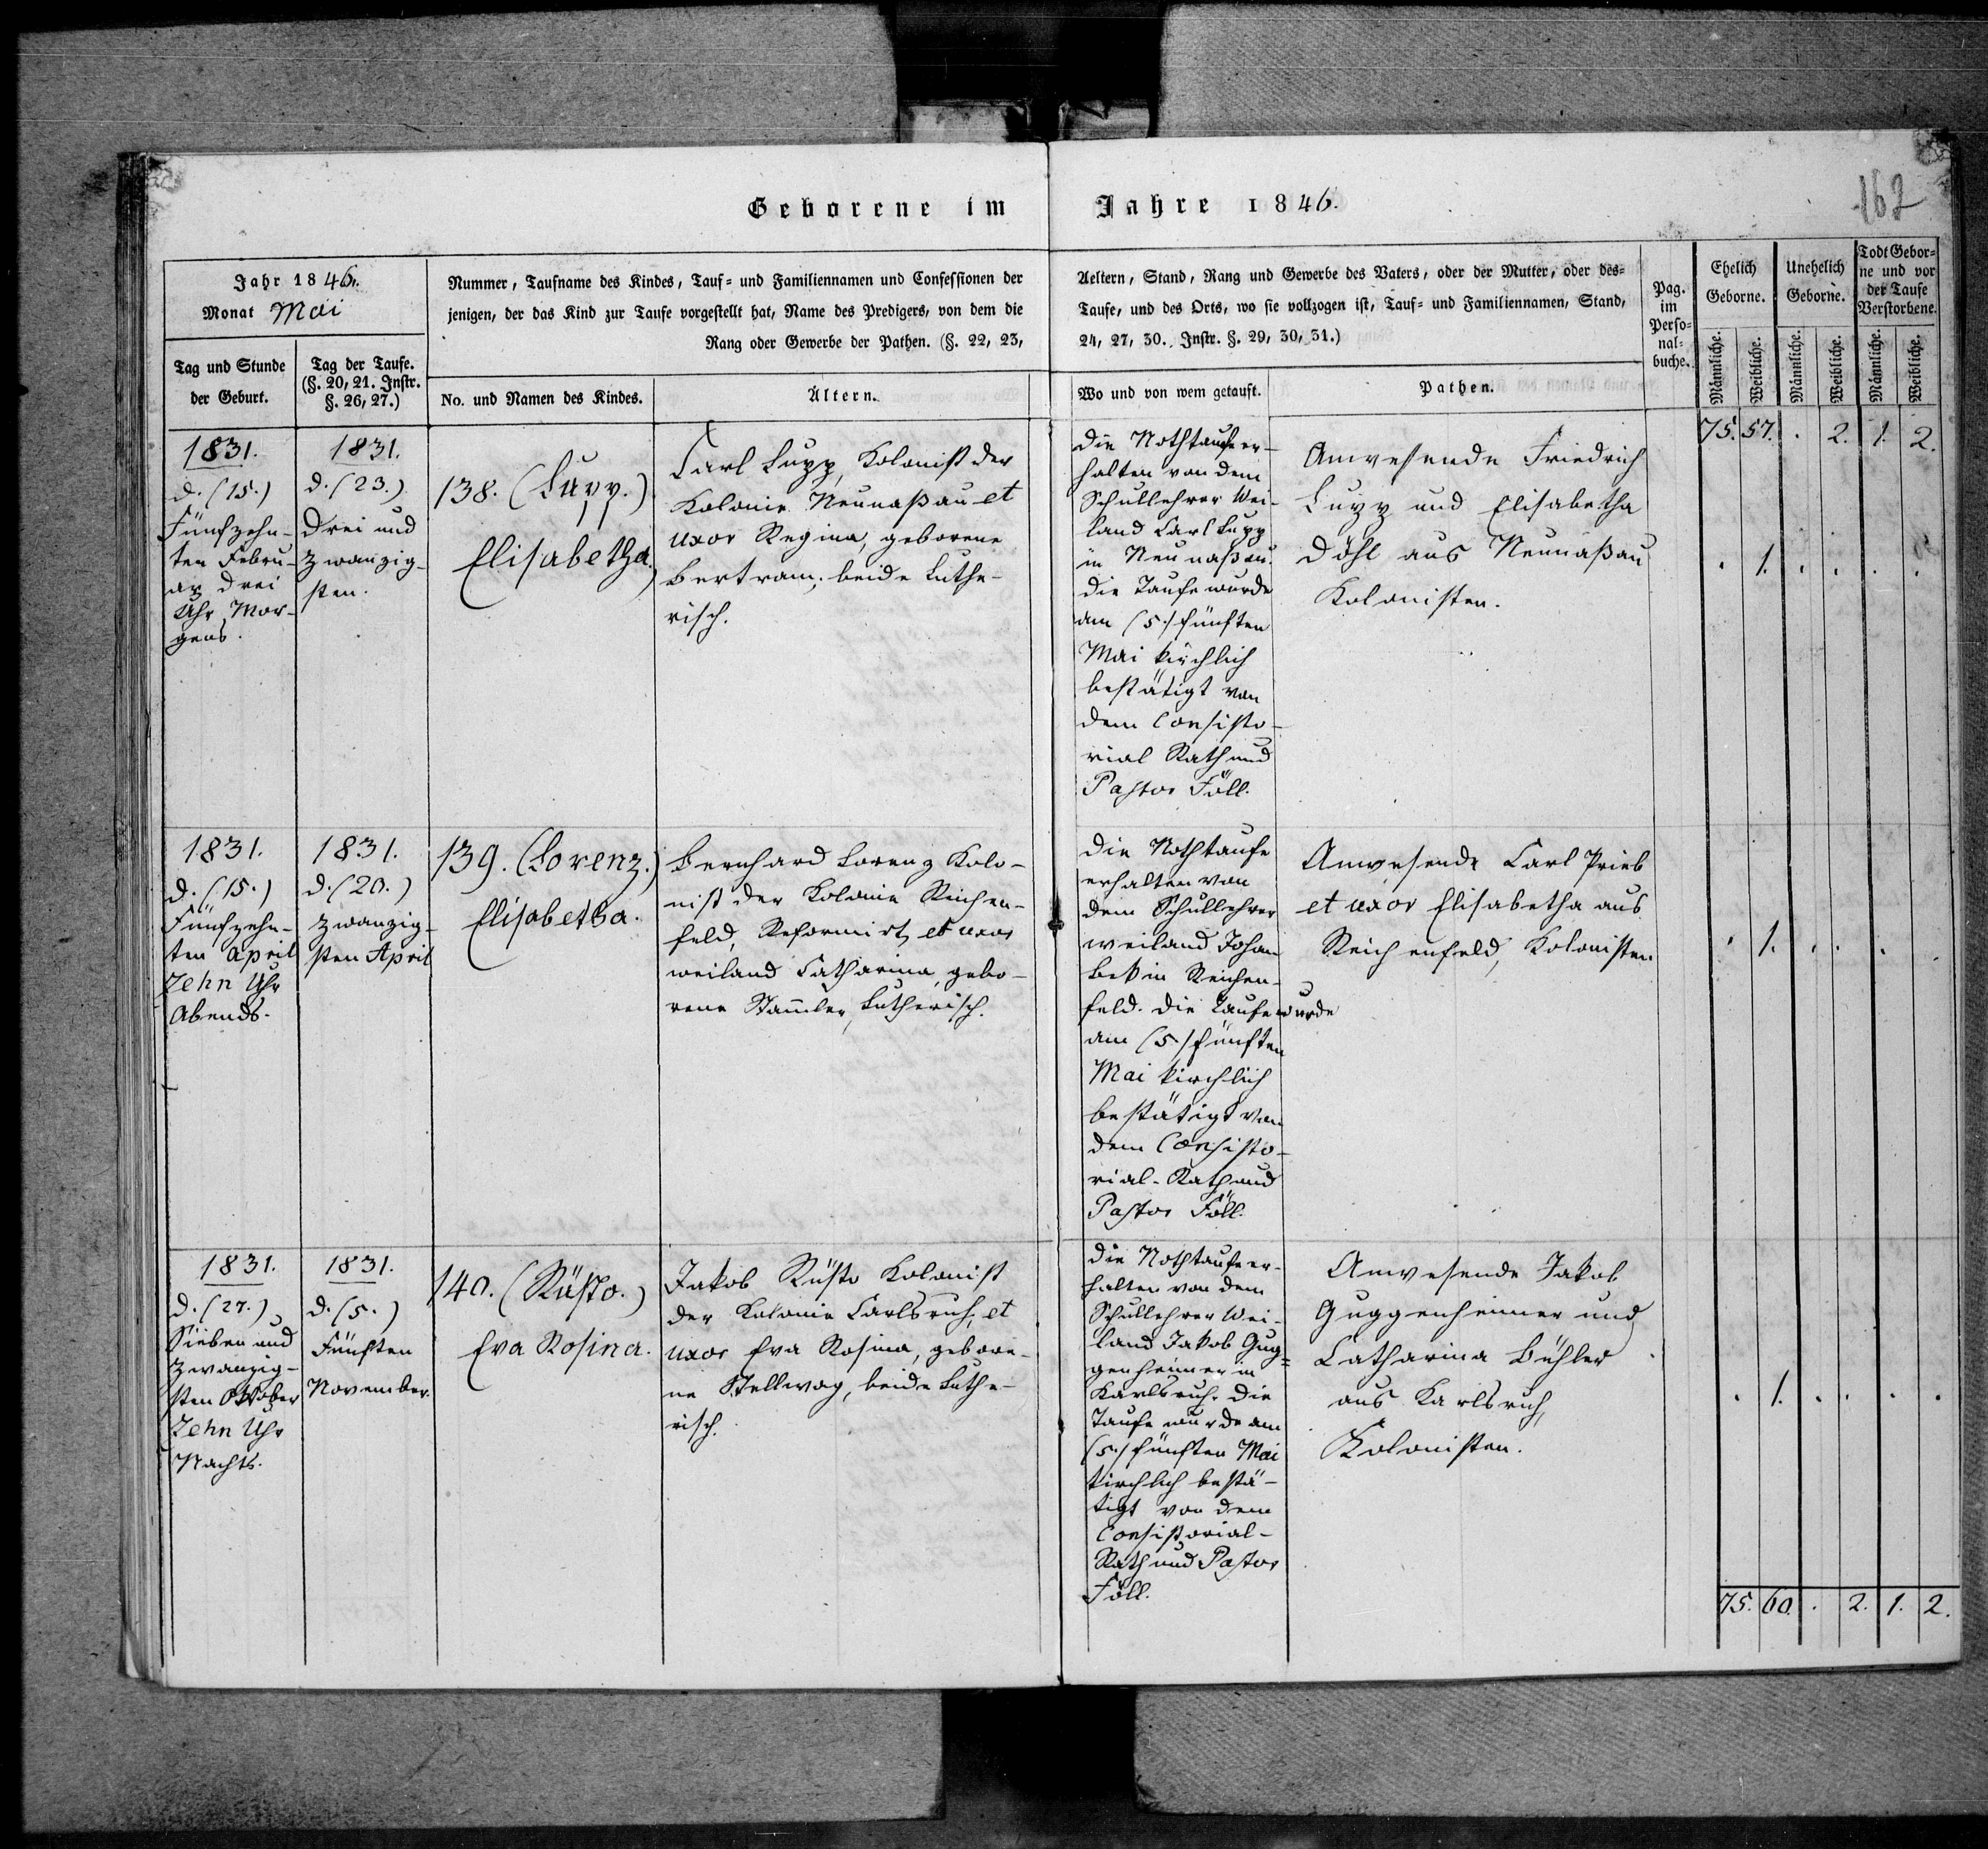 Geborene im Jahre 1846.
162
Jahr 1846.
Monat Mai
Nummer, Taufname des Kindes, Tauf= und Familiennamen und Confessionen der
jenigen, der das Kind zur Taufe vorgestellt hat, Name des Predigers, von dem die
Rang oder Gewerbe der Pathen. (§. 22, 23,
Aeltern, Stand, Rang und Gewerbe des Vaters, oder der Mutter, oder des=
Taufe, und des Orts, wo sie vollzogen ist, Tauf= und Familiennamen, Stand,
24, 27, 30. Instr. §. 29, 30, 31.)
Pag.
im
Perso=
nal=
buche.
Ehelich
Geborne.
Unehelich
Geborne.
Todt Gebor=
ne und vor
der Taufe
Verstorbene.
Männliche.
Weibliche.
Männliche.
Weibliche.
Männliche.
Weibliche.
Tag und Stunde
der Geburt.
Tag der Taufe.
(§. 20, 21. Instr.
§. 26, 27.)
No. und Namen des Kindes.
Ältern.
Wo und von wem getauft.
Pathen.
75. 57. . 2. 1. 2.
1831.
d. (15.)
Fünfzehn-
ten Febru-
ar drei
Uhr Mor-
gens.
1831.
d. (23.)
Drei und
zwanzig-
sten.
138. (Lupp.)
Elisabetha.
Carl Lupp, Kolonist der
Kolonie Neunaßau et
uxor Regina, geborene
Bertram, beide Luthe-
risch.
Die Nothtaufe er-
halten von dem
Schullehrer Wei-
land Carl Lupp
in Neunaßau.
Die Taufe wurde
am (5.) fünften
Mai kirchlich
bestätigt von
dem Consisto-
rial Rath und
Pastor Föll.
Anwesende Friedrich
Lupp und Elisabetha
Döhl aus Neunaßau
Kolonisten.
. 1. . . . .
1831.
d. (15.)
Fünfzehn-
ten April
Zehn Uhr
Abends.
1831.
d. (20.)
zwanzig-
sten April
139. (Lorenz.)
Elisabetha.
Bernhard Lorenz Kolo-
nist der Kolonie Reichen-
feld, Reformirt, et uxor
weiland Catharina, gebo-
rene Stamler, Lutherisch.
Die Nothtaufe
erhalten von
dem Schullehrer
weiland Johan
Bek in Reichen-
feld. Die Taufe wurde
am (5.) fünften
Mai kirchlich
bestätigt von
dem Consisto-
rial-Rath und
Pastor Föll.
Anwesende Carl Prieb
et uxor Elisabetha aus
Reichenfeld, Kolonisten
. 1. . . . .
1831.
d. (27.)
Sieben und
zwanzig-
sten Oktober
Zehn Uhr
Nachts.
1831.
d. (5.)
Fünften
November.
140. (Rüsto.)
Eva Rosina.
Jakob Rüsto Kolonist
der Kolonie Carlsruh, et
uxor Eva Rosina, gebore-
ne Stellwag, beide Luthe-
risch.
Die Nothtaufe er-
halten von dem
Schullehrer Wei-
land Jakob Gug=
genheimer in
Karlsruh. Die
Taufe wurde am
(5.) fünften Mai
kirchlich bestä-
tigt von dem
Consistorial-
Rath und Pastor
Föll.
Anwesende Jakob
Guggenheimer und
Catharina Bühler
aus Karlsruh,
Kolonisten.
. 1. . . . .
75. 60. . 2. 1. 2.